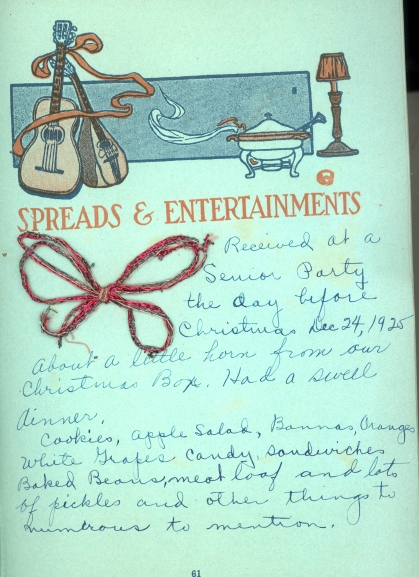 SPREADS & ENTERTAINMENTS
Received at a
Senior Party
the day before
Christmas Dec 24, 1925
about a little horn from our
Christmas Box. Had a swell
dinner.
Cookies, apple Salad, Bannas, Oranges
White Grapes Candy, sandwiches
Baked Beans, meat loaf and lots
of pickles and other things to
numtrous to mention.
61